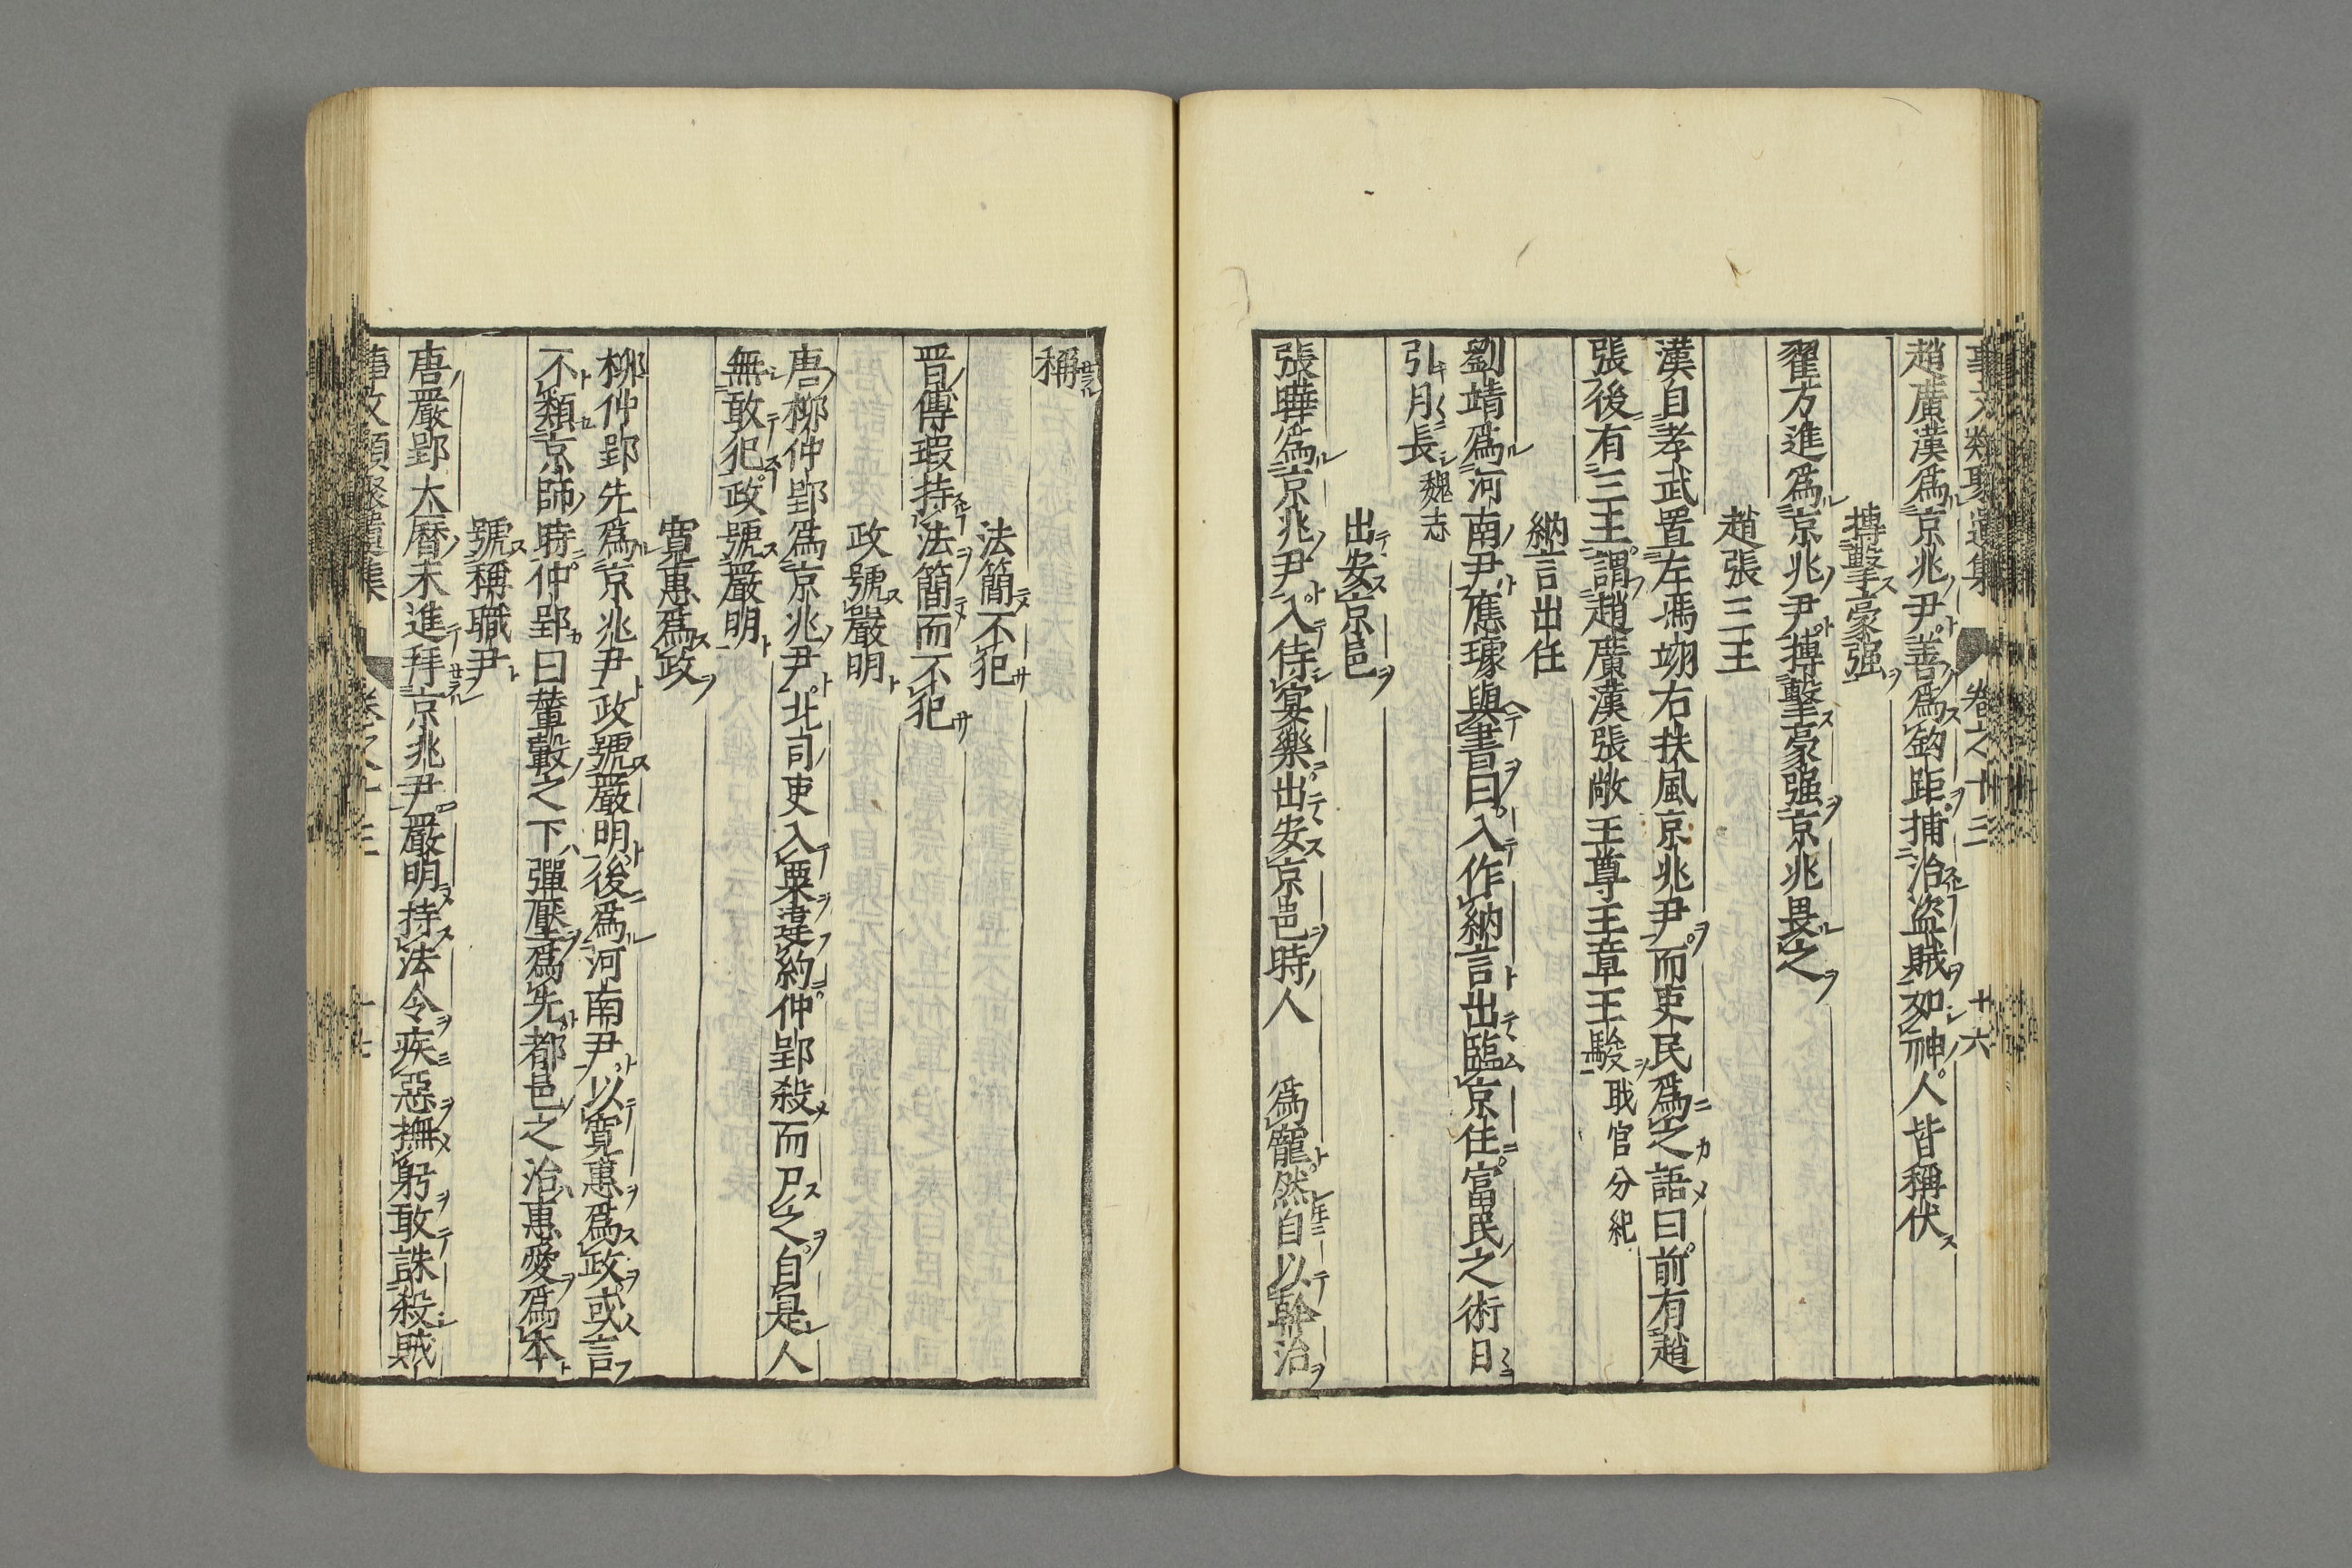 事文類聚遺集 卷之十三 廿六
趙廣漢爲京兆尹善爲鈎距捕治盜賊如神人皆稱伏
搏擊豪强
翟方進爲京兆尹搏擊豪强京兆畏之
趙張三王
漢自孝武置左馮翊右扶風京兆尹而吏民爲之語曰前有趙
張後有三王謂趙廣漢張敞王尊王章王駿職官分紀
納言出任
劉靖爲河南尹應璩與書曰入作納言出臨京任富民之術日
引月長魏志
出安京邑
張曄爲京兆尹入侍宴樂出安京邑時人 爲寵然自以幹治
稱
法簡不犯
晋傅瑕持法簡而不犯
政號嚴明
唐柳仲郢爲京兆尹北司吏入粟違約仲郢殺而尸之自是人
無敢犯政號嚴明
寬惠爲政
柳仲郢先爲京兆尹政號嚴明後爲河南尹以寬惠爲政或言
不類京師時仲郢曰輦轂之下彈壓爲先都邑之治惠愛爲本
號稱職尹
唐嚴郢大曆末進拜京兆尹嚴明持法令疾惡撫躬敢誅殺賊
事文類聚遺集 卷之十三 十七